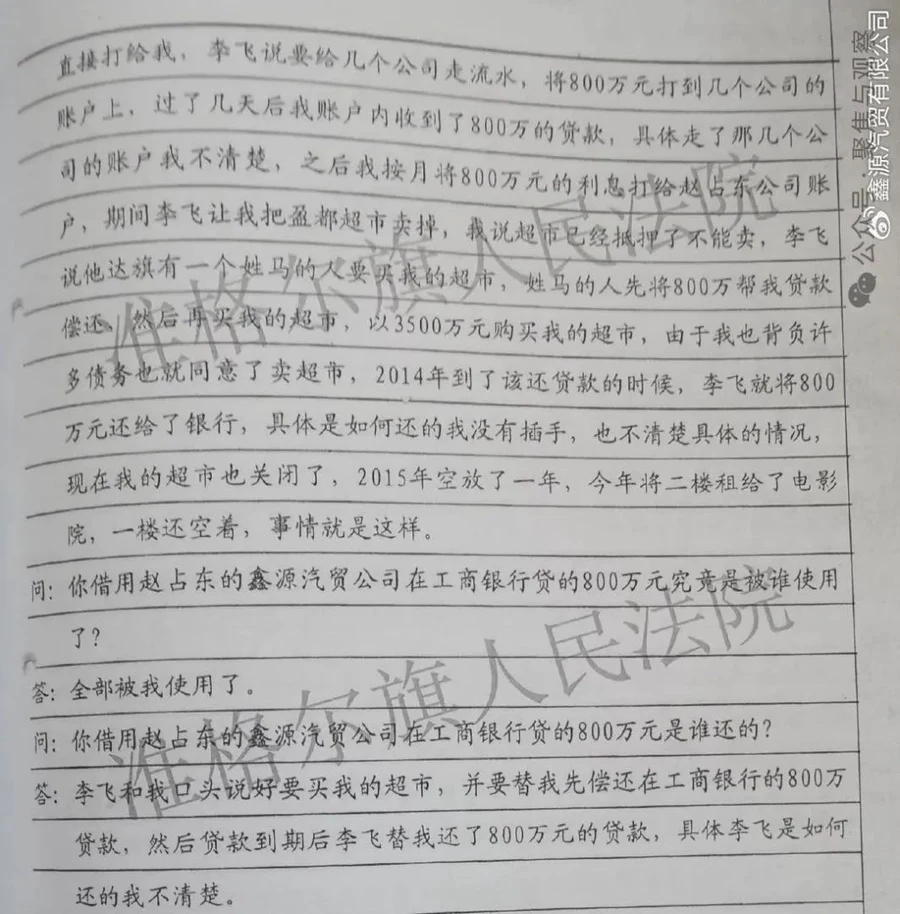 直接打给我，李飞说要给几个公司走流水，将800万元打到几个公司的
账户上，过了几天后我账户内收到了800万的贷款，具体走了那几个公
司的账户我不清楚，之后我按月将800万元的利息打给赵占东公司账
户，期间李飞让我把盈都超市卖掉，我说超市已经抵押了不能卖，李飞
说他达旗有一个姓马的人要买我的超市，姓马的人先将800万帮我贷款
偿还，然后再买我的超市，以3500万元购买我的超市，由于我也背负许
多债务也就同意了卖超市，2014年到了该还贷款的时候，李飞就将800
万元还给了银行，具体是如何还的我没有插手，也不清楚具体的情况，
现在我的超市也关闭了，2015年空放了一年，今年将二楼租给了电影
院，一楼还空着，事情就是这样。
问：你借用赵占东的鑫源汽贸公司在工商银行贷的800万元究竟是被谁使用
了？
答：全部被我使用了。
问：你借用赵占东的鑫源汽贸公司在工商银行贷的800万元是谁还的？
答：李飞和我口头说好要买我的超市，并要替我先偿还在工商银行的800万
贷款，然后贷款到期后李飞替我还了800万元的贷款，具体李飞是如何
还的我不清楚。
准格尔旗人民法院
准格尔旗人民法院
公众号·聚焦与观察
鑫源汽贸有限公司